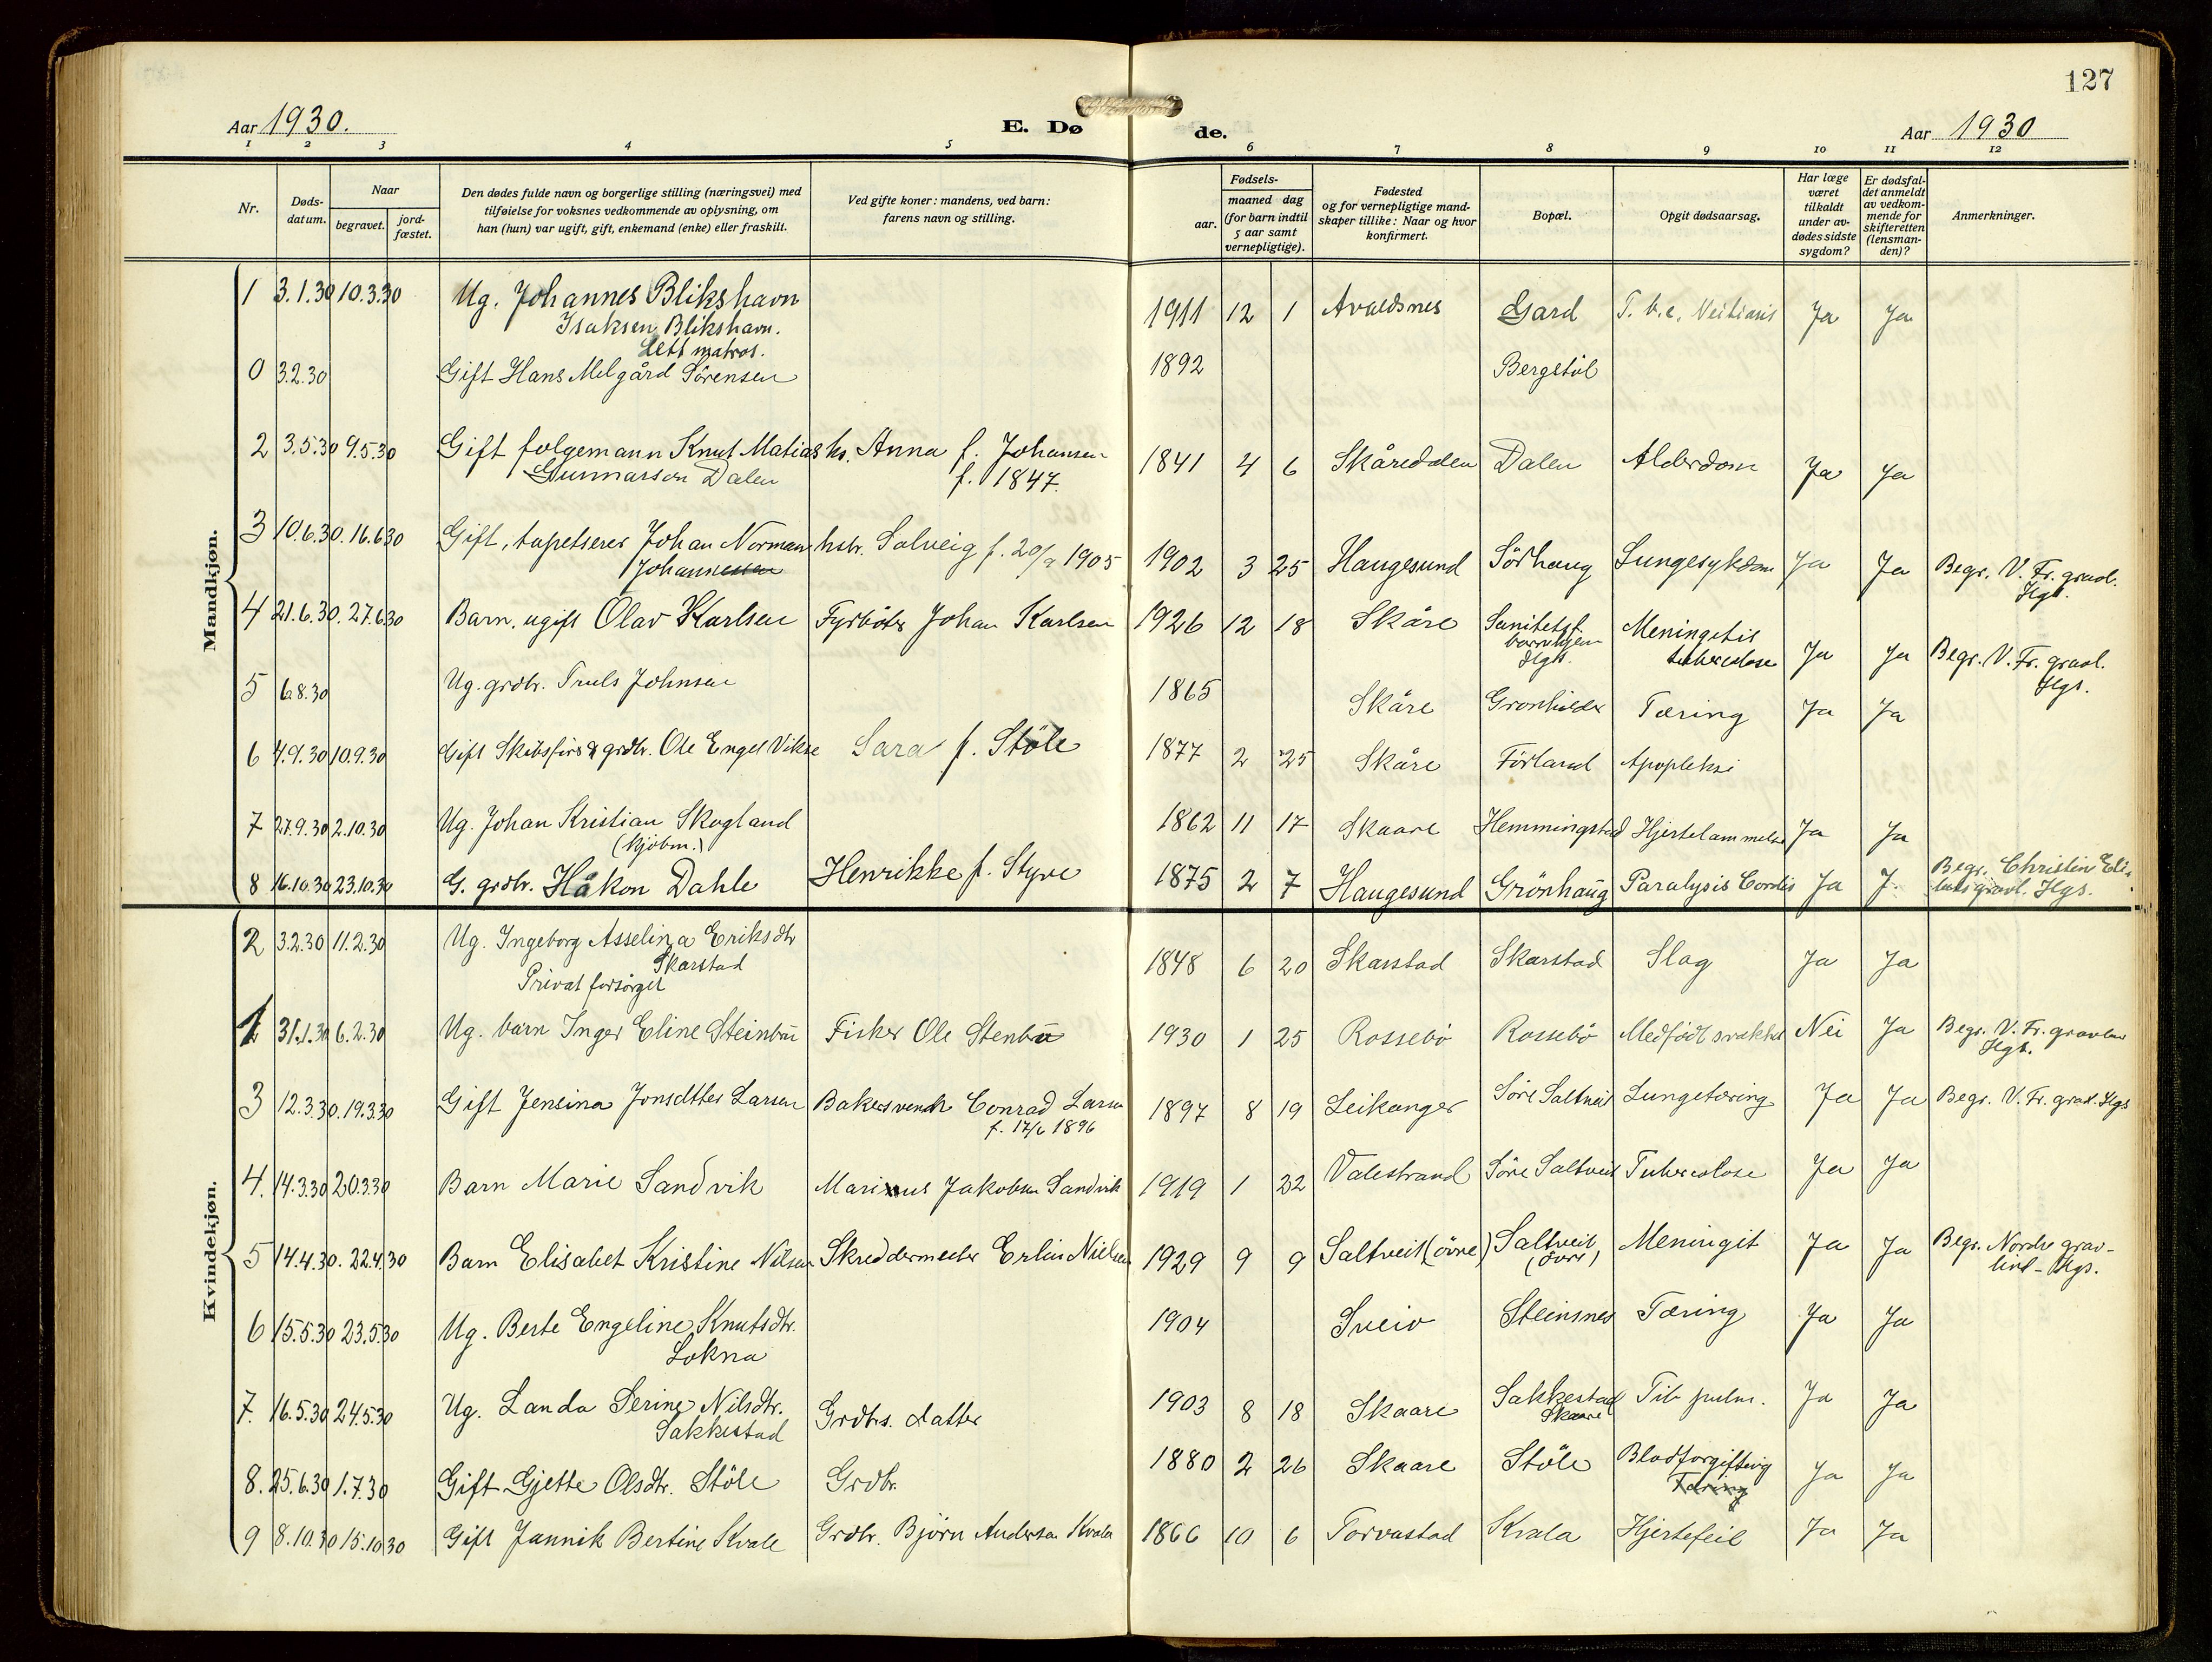 127
Aar 1930.
E. Døde.
Aar 1930
1 2 3 4 5 6 7 8 9 10 11 12
Nr.
Døds-
datum.
Naar
begravet.
jord-
fæstet.
Den dødes fulde navn og borgerlige stilling (næringsvei) med
tilføielse for voksnes vedkommende av oplysning, om
han (hun) var ugift, gift, enkemand (enke) eller fraskilt.
Ved gifte koner: mandens, ved barn:
farens navn og stilling.
Fødsels-
aar.
maaned dag
(for barn indtil
5 aar samt
vernepligtige).
Fødested
og for vernepligtige mand-
skaper tillike: Naar og hvor
konfirmert.
Bopæl.
Opgit dødsaarsag.
Har læge
været
tilkaldt
under av-
dødes sidste
sygdom?
Er dødsfal-
det anmeldt
av vedkom-
mende for
skifteretten
(lensman-
den)?
Anmerkninger.
Mandkjøn.
1 3.1.30 10.3.30 Ug. Johannes Blikshavn 1911 12 1 Avaldsnes Gard Ja Ja
Isaksen Blikshavn.
Lett matros.
0 3.2.30 Gift Hans Melgård Sörensen 1892 Bergstöl
2 3.5.30 9.5.30 Gift folgemann Knut Matias hs. Anna f. Johansen 1841 4 6 Skåredalen Dalen Alderdom Ja Ja
Gunnarson Dalen f. 1847.
3 10.6.30. 16.6.30 Gift, tapetserer Johan Norman hstr. Solveig f. 1905 1902 3 25 Haugesund Sörhaug Lungesykdom Ja Ja Begr. V. Fr. gravl.
Johannessen Hgs.
4 21.6.30. 27.6.30 Barn. ugift Olav Karlsen Fyrböter Johan Karlsen 1926 12 18 Skåre Sanitetsf. Meningitis Ja Ja Begr. V. Fr. gravl.
barnehjem tuberculose Hgs.
Hgs.
5 6.8.30 Ug. grdbr. Truls Johnsen 1865 Skåre Tæring Ja Ja
6 4.9.30 10.9.30 Gift Skibsförer & grdbr. Ole Engel Vikse Sara f. Stöle 1877 2 25 Skåre Förland Apopleksi
7 27.9.30 2.10.30 Ug. Johan Kristian Skogland 1862 11 17 Skaare Hemmingstad Hjertelammelse Ja Ja
(Kjöbm.)
8 16.10.30 23.10.30 G. grdbr. Håkon Dahle Henrikke f. Styve 1875 2 7 Haugesund Grönhaug Paralysis Cordis Ja J. Begr. Christin Eli-
gravl. Hgs.
Kvindekjøn.
2 3.2.30 11.2.30 Ug. Ingeborg Asselina Eriksdtr 1848 6 20 Skarstad Skarstad Slag Ja Ja
Skarstad
Privat forsörget
1 31.1.30 6.2.30 Ug. barn Inger Eline Steinbru Fisker Ole Stenbru 1930 1 25 Rossebö Rossebö Medfödt svakhet Nei Ja Begr. V. Fr. gravlun
Hgs.
3 12.3.30. 19.3.30 Gift Jensina Jonsdtter Larsen Bakersvend Conrad Larsen 1897 8 19 Leikanger Söre Saltveit Lungetæring Ja Ja Begr. V. Fr. grav. Hgs
f. 17/6 1896
4. 14.3.30 20.3.30 Barn Marie Sandvik Marinus Jakobsen Sandvik 1919 1 22 Valestrand Söre Saltveit Tuberculose Ja Ja
5 14.4.30. 22.4.30 Barn Elisabet Kristine Nilsen Skreddermester Erling Nielsen 1929 9 9 Saltveit (övre) Saltveit Meningit Ja Ja Begr. Nordre grav-
(övre) lund - Hgs.
6 15.5.30 23.5.30 Ug. Berte Engeline Knutsdtr. 1904 Sveio Steinsnes Tæring Ja Ja
Lokna
7. 16.5.30 24.5.30 Ug. Landa Serine Nilsdtr. Grdbrs. datter 1903 8 18 Skaare Sakkestad Tub pulm. Ja Ja
Sakkestad Skaare
8. 25.6.30 1.7.30 Gift Gjette Olsdtr. Stöle Grdbr. 1880 2 26 Skaare Stöle Blodforgiftnig Ja Ja
Tæring
9 8.10.30 15.10.30 Gift Jannik Bertine Kvale Grdbr. Björn Andersen Kvala 1866 10 6 Torvastad Kvala Hjertefeil Ja Ja